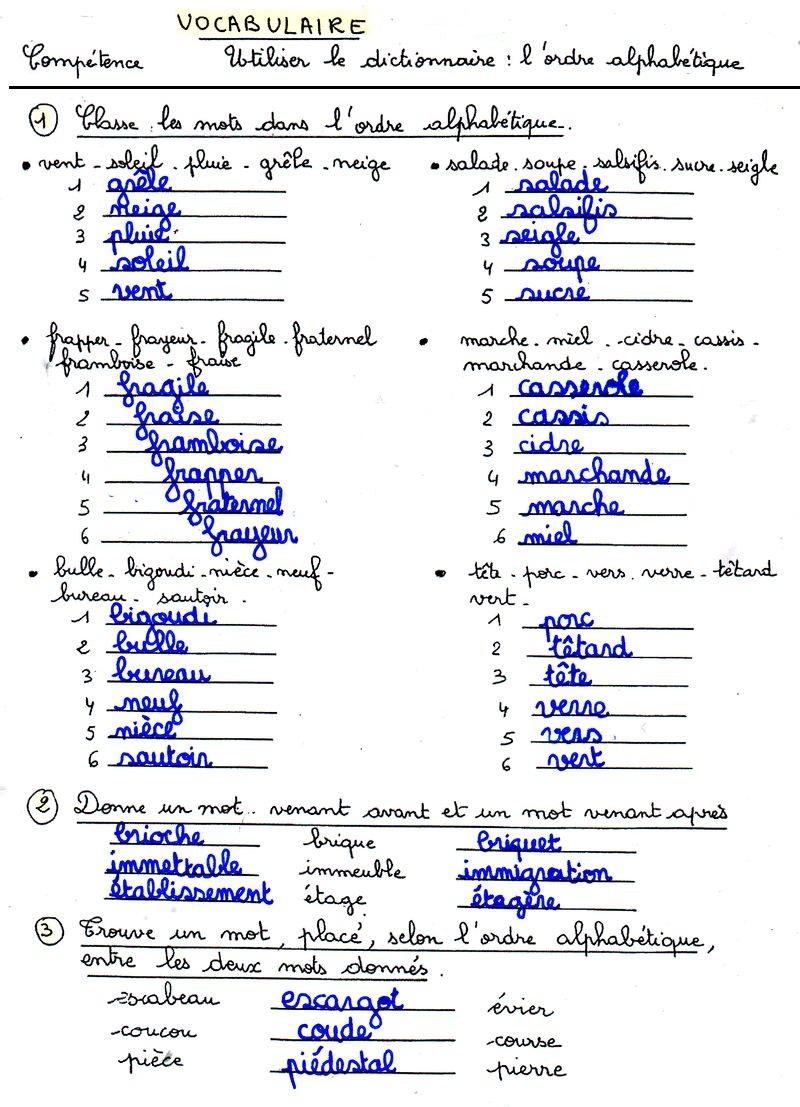 VOCABULAIRE
Compétence Utiliser le dictionnaire : l'ordre alphabétique
1 Classe les mots dans l'ordre alphabétique.
• vent - soleil - pluie - grêle - neige
1 grêle
2 neige
3 pluie
4 soleil
5 vent
• salade - soupe - salsifis - sucre - seigle
1 salade
2 salsifis
3 seigle
4 soupe
5 sucre
• frapper - frayeur - fragile - fraternel
framboise - fraise
1 fragile
2 fraise
3 framboise
4 frapper
5 fraternel
6 frayeur
• marche - miel - cidre - cassis -
marchande - casserole.
1 casserole
2 cassis
3 cidre
4 marchande
5 marche
6 miel
• bulle - bigoudi - nièce - neuf -
bureau - sautoir.
1 bigoudi
2 bulle
3 bureau
4 neuf
5 nièce
6 sautoir
• tête - porc - vers - verre - têtard
vert -
1 porc
2 têtard
3 tête
4 verre
5 vers
6 vert
2 Donne un mot venant avant et un mot venant après
brioche brique briquet
immettable immeuble immigration
établissement étage étagère
3 Trouve un mot, placé, selon l'ordre alphabétique,
entre les deux mots donnés.
escabeau escargot évier
coucou coude course
pièce piédestal pierre